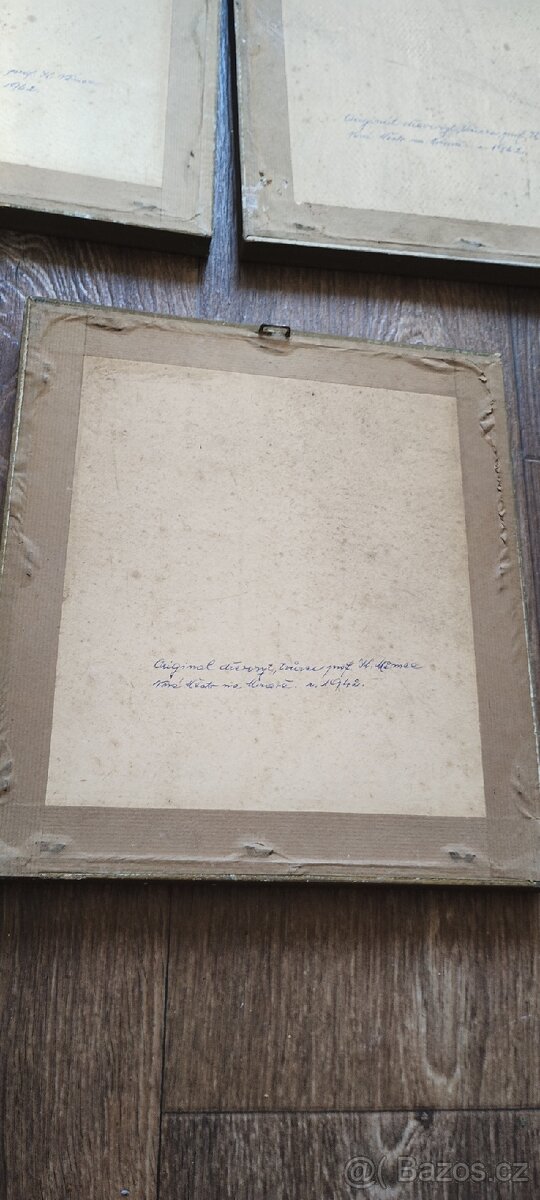 prof. K. Němec
1942.
Originál dřevoryt, tvůrce prof. K.
Nové Město na Moravě r. 1942.
Originál dřevoryt, tvůrce prof. K. Němec
Nové Město na Moravě. r. 1942.
@( Bazoš.cz